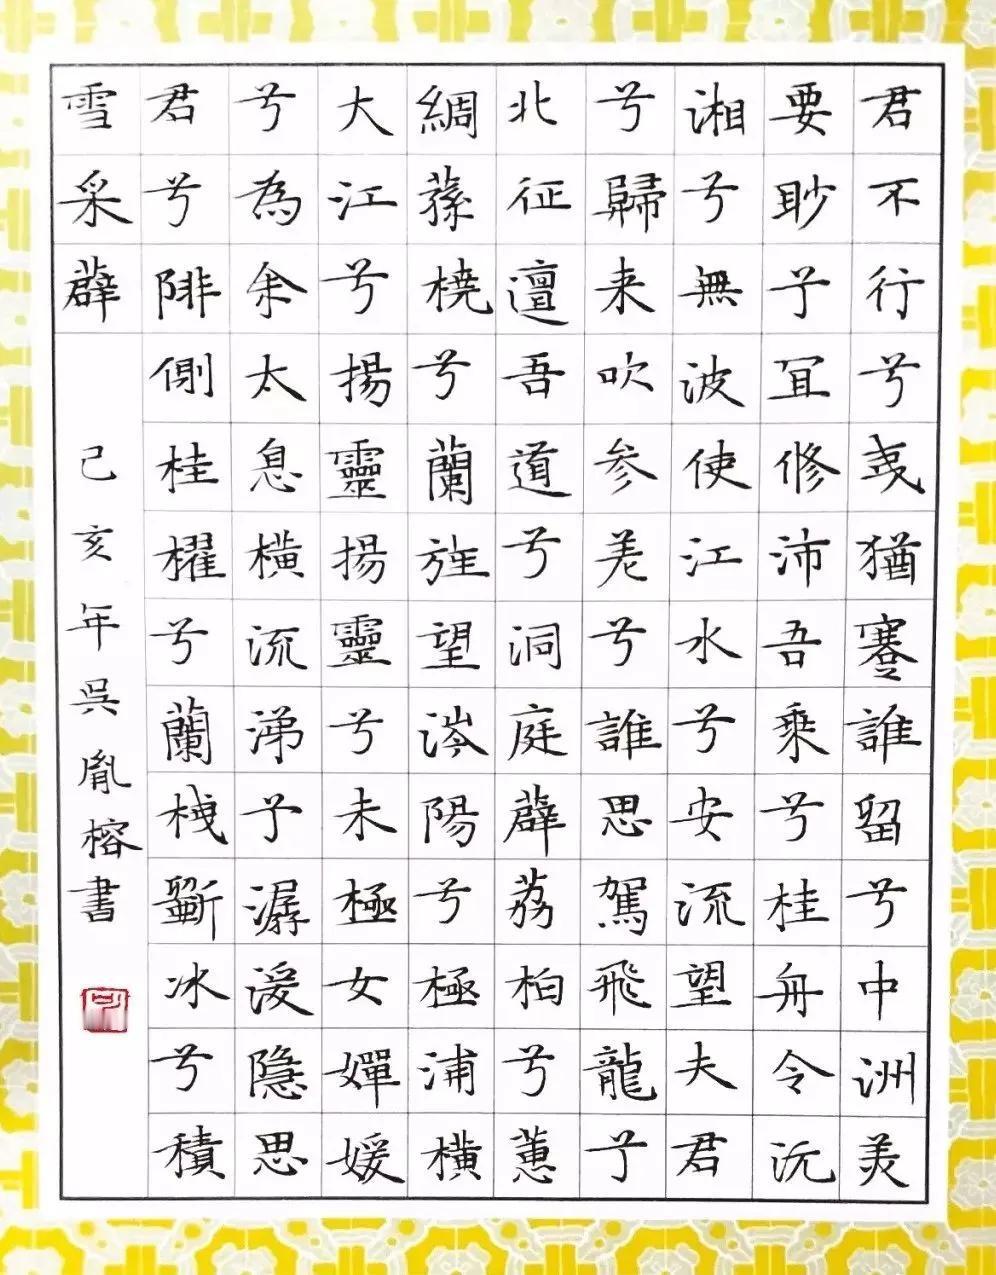 君不行兮夷猶蹇誰留兮中洲美
要眇子冝修沛吾乘兮桂舟令沅
湘兮無波使江水兮安流望夫君
兮歸来吹参差兮誰思駕飛龍兮
北征邅吾道兮洞庭薜荔柏兮蕙
綢蓀橈兮蘭旌望涔陽兮極浦横
大江兮揚靈揚靈兮未極女嬋媛
兮為余太息横流涕予潺湲隱思
君兮陫側桂櫂兮蘭枻斲冰兮積
雪采薜
己亥年吳胤榕書